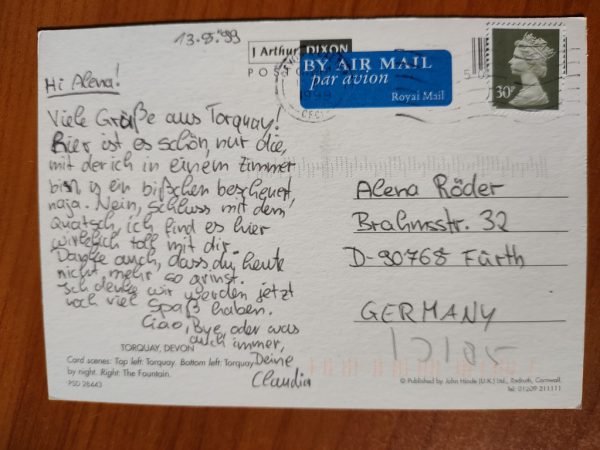 13.8.'99
J Arthur DIXON
POSTC
BY AIR MAIL
par avion
Royal Mail
1999
30P
Hi Alena!
Viele Grüße aus Torquay!
Hier ist es schön, nur die,
mit der ich in einem Zimmer
bin is ein bißchen bescheuert,
naja. Nein, Schluss mit dem
Quatsch, ich find es hier
wirklich toll mit dir.
Danke auch, dass du heute
nicht mehr so grinst.
Ich denke wir werden jetzt
noch viel Spaß haben.
Ciao, Bye, oder was
auch immer,
Deine
Claudia
Alena Röder
Brahmsstr. 32
D-90768 Fürth
GERMANY
TORQUAY, DEVON
Card scenes: Top left: Torquay. Bottom left: Torquay
by night. Right: The Fountain.
PSD 28443
© Published by John Hinde (U.K.) Ltd., Redruth, Cornwall.
Tel: 01209 211111